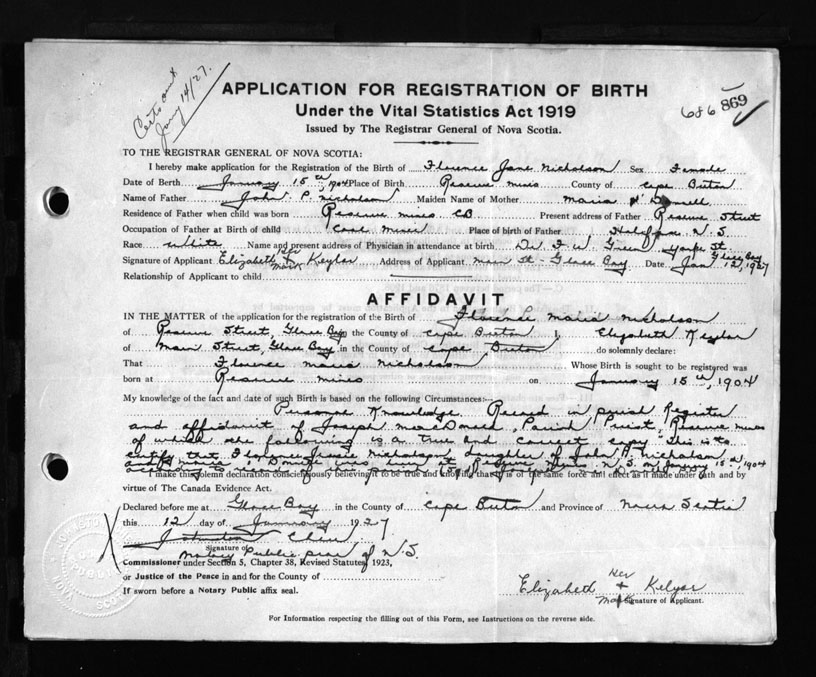 Certs out
Jany 14/27.
APPLICATION FOR REGISTRATION OF BIRTH
Under the Vital Statistics Act 1919
686 869
Issued by The Registrar General of Nova Scotia.
TO THE REGISTRAR GENERAL OF NOVA SCOTIA:
I hereby make application for the Registration of the Birth of Florence Jane Nicholson Sex Female
Date of Birth January 15th, 1904 Place of Birth Reserve mines County of Cape Breton
Name of Father John P. Nicholson Maiden Name of Mother Maria
Residence of Father when child was born Reserve mines CB Present address of Father Reserve Street
Occupation of Father at Birth of child Coal Miner Place of birth of Father Halifax N.S.
Race white Name and present address of Physician in attendance at birth Dr F. W. Green, York St Glace Bay
Signature of Applicant Elizabeth her + mark Keylor Address of Applicant main St - Glace Bay Date Jan 12, 1927
Relationship of Applicant to child
AFFIDAVIT
IN THE MATTER of the application for the registration of the Birth of Florence Maria Nicholson
of Reserve Street, Glace Bay in the County of Cape Breton I, Elizabeth Keylor
of Main Street, Glace Bay in the County of Cape Breton do solemnly declare:
That Florence Maria Nicholson Whose Birth is sought to be registered was
born at Reserve mines on January 15th, 1904
My knowledge of the fact and date of such Birth is based on the following Circumstances:—
Personal Knowledge. Record in parish Register
and affidavit of Joseph MacDonald, Parish Priest, Reserve mines
of which the following is a true and correct copy "This is to
certify that Florence Jessie Nicholson, daughter of John P. Nicholson
and was born at Reserve Mines N.S. on January 15th, 1904
I make this solemn declaration conscienciously believing it to be true and knowing that it is of the same force and effect as if made under oath and by
virtue of The Canada Evidence Act.
Declared before me at Glace Bay in the County of Cape Breton and Province of Nova Scotia
this 12 day of January 1927
Signature of
Notary Public of N.S.
Commissioner under Section 5, Chapter 38, Revised Statutes 1923,
or Justice of the Peace in and for the County of
If sworn before a Notary Public affix seal.
Elizabeth her + mark Kelyor
Signature of Applicant.
For Information respecting the filling out of this Form, see Instructions on the reverse side.